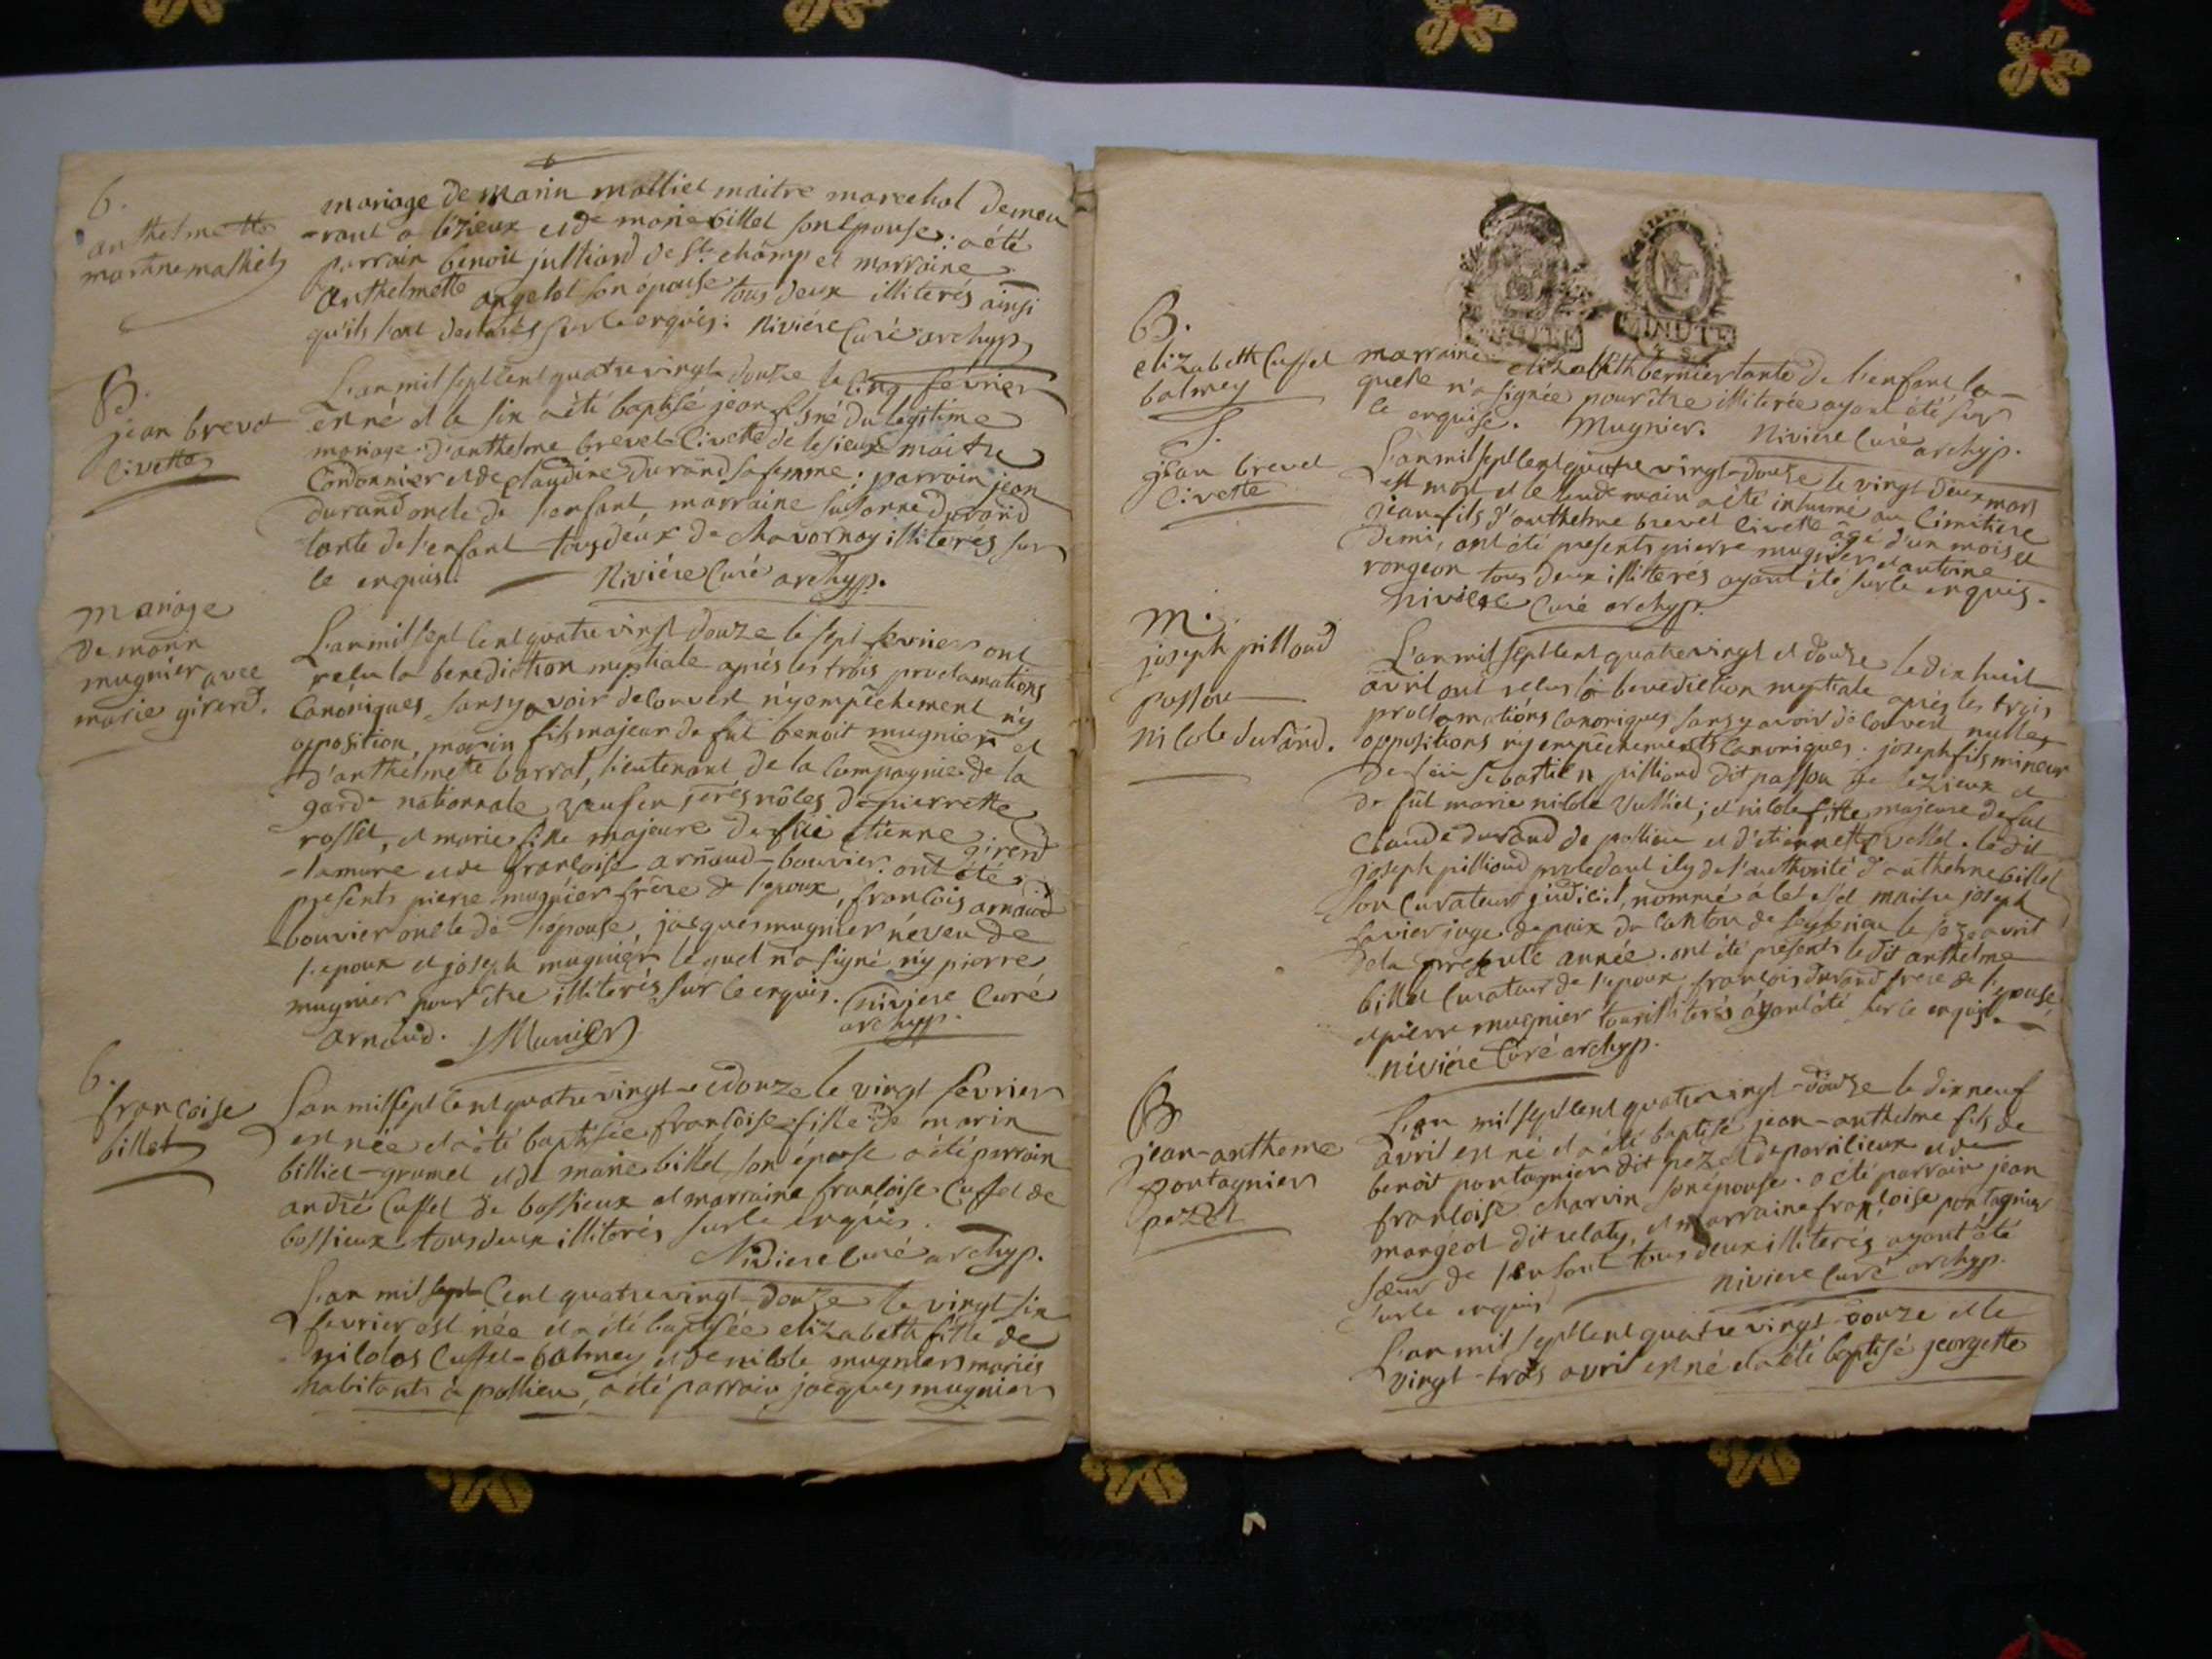 B.
anthelmette
marinne mathiet
mariage de marin matliet maitre marechal demeu
-rant a lézieux et de marie billet son epouse: a été
parrain benoit julliand de St champ et marraine
anthelmette angelot son épouse tous deux illiterés ainsi
qu'ils l'ont declarés sur le enquis. Nivière Curé archyp.
B.
jean brevet
Civette
L'an mil sept cent quatre vingt douze le cinq février
est né et le six a été baptisé jean fils né du légitime
mariage d'anthelme brevet Civette de lesieux maitre
Cordonnier et de claudine durand sa femme: parrain jean
durand oncle de l'enfant marraine susanne durand
tante de l'enfant tous deux de Chavornay illiteres sur
le enquis. Nivière Curé archyp.
mariage
de marin
mugnier avec
marie girerd.
L'an mil sept cent quatre vingt douze le sept fevrier ont
reçu la benediction nuptiale après les trois proclamations
Canoniques sans y avoir decouvert n'y empêchement n'y
opposition, marin fils majeur de fut benoit mugnier et
d'anthelmette barrat, lieutenant de la Compagnie de la
garde nationnale, veuf en nôles de pierrette
rosset, et marie fille majeure de fut étienne girerd
-lamure et de françoise arnaud-bouvier: ont été
presents pierre mugnier frère de l'epoux, françois arnaud
-bouvier oncle de l'épouse, jacques mugnier néveu de
l'epoux et joseph mugnier lequel n'a signé n'y pierre
mugnier pour être illiterés sur le enquis. Nivière Curé
arnaud. J Munier archyp.
B.
françoise
billet
L'an mil sept cent quatre vingt-et douze le vingt fevrier
est née et a été baptisée françoise fille de marin
billiet-grumel et de marie billet son épouse a été parrain
andré Cussel de bossieux et marraine françoise Cussel de
bossieux tous deux illiterés sur le enquis.
Nivière Curé archyp.
L'an mil sept Cent quatre vingt-douze le vingt six
fevrier est née et a été baptisée elizabeth fille de
nicolas Cussel-balmey et de nicole mugnier mariés
habitants à pollieu, a été parrain jacques mugnier
MINUTE
B.
elizabeth Cussel
balmey
marraine elizabeth bernier tante de l'enfant la-
quelle n'a signée pour être illiterée ayant été sur
le enquise. Mugnier. Nivière Curé archyp.
S.
jean brevet
Civette
L'an mil sept cent quatre vingt-douze le vingt deux mars
est mort et le lendemain a été inhumé au Cimitiere
jean fils d'anthelme brevet Civette âgé d'un mois et
demi, ont été presents pierre mugnier et antoine
rongeon tous deux illiterés ayant été sur le enquis.
Nivière Curé archyp.
M.
joseph pilloud
passou
nicole durand.
L'an mil sept cent quatre vingt et douze le dix huit
avril ont reçus la benediction nuptiale après les trois
proclamations Canoniques sans y avoir découvert nulles
oppositions n'y empêchements Canoniques. joseph fils mineur
de feu sebastien pilliond dit passou de lezieux et
de fut marie nicole Vulliet; et nicole fille majeure de fut
Claude durand de pollieu et d'etiennette vollet. ledit
joseph pilliond procedant icy de l'authorité d'anthelme billet
son Curateur judiciel, nommé à cet effet maitre joseph
favier juge de paix du Canton de seyssieu le seze avril
de la presente année. ont été présents le dit anthelme
billet Curateur de l'epoux, françois durand frere de l'epouse,
et pierre mugnier tous illiterés ayant été sur le enquis.
Nivière Curé archyp.
B
jean-antheme
pontagnier
pezet
L'an mil sept cent quatre vingt-douze le dix neuf
avril est né et a été baptisé jean-anthelme fils de
benoit pontagnier dit pezet de parvilieux et de
françoise charvin son épouse. a été parrain jean
mangeot dit velaty, et marraine françoise pontagnier
sœur de l'enfant tous deux illiterés ayant été
sur le enquis Nivière Curé archyp.
L'an mil sept cent quatre vingt-douze et le
vingt-trois avril est né et a été baptisé georgette